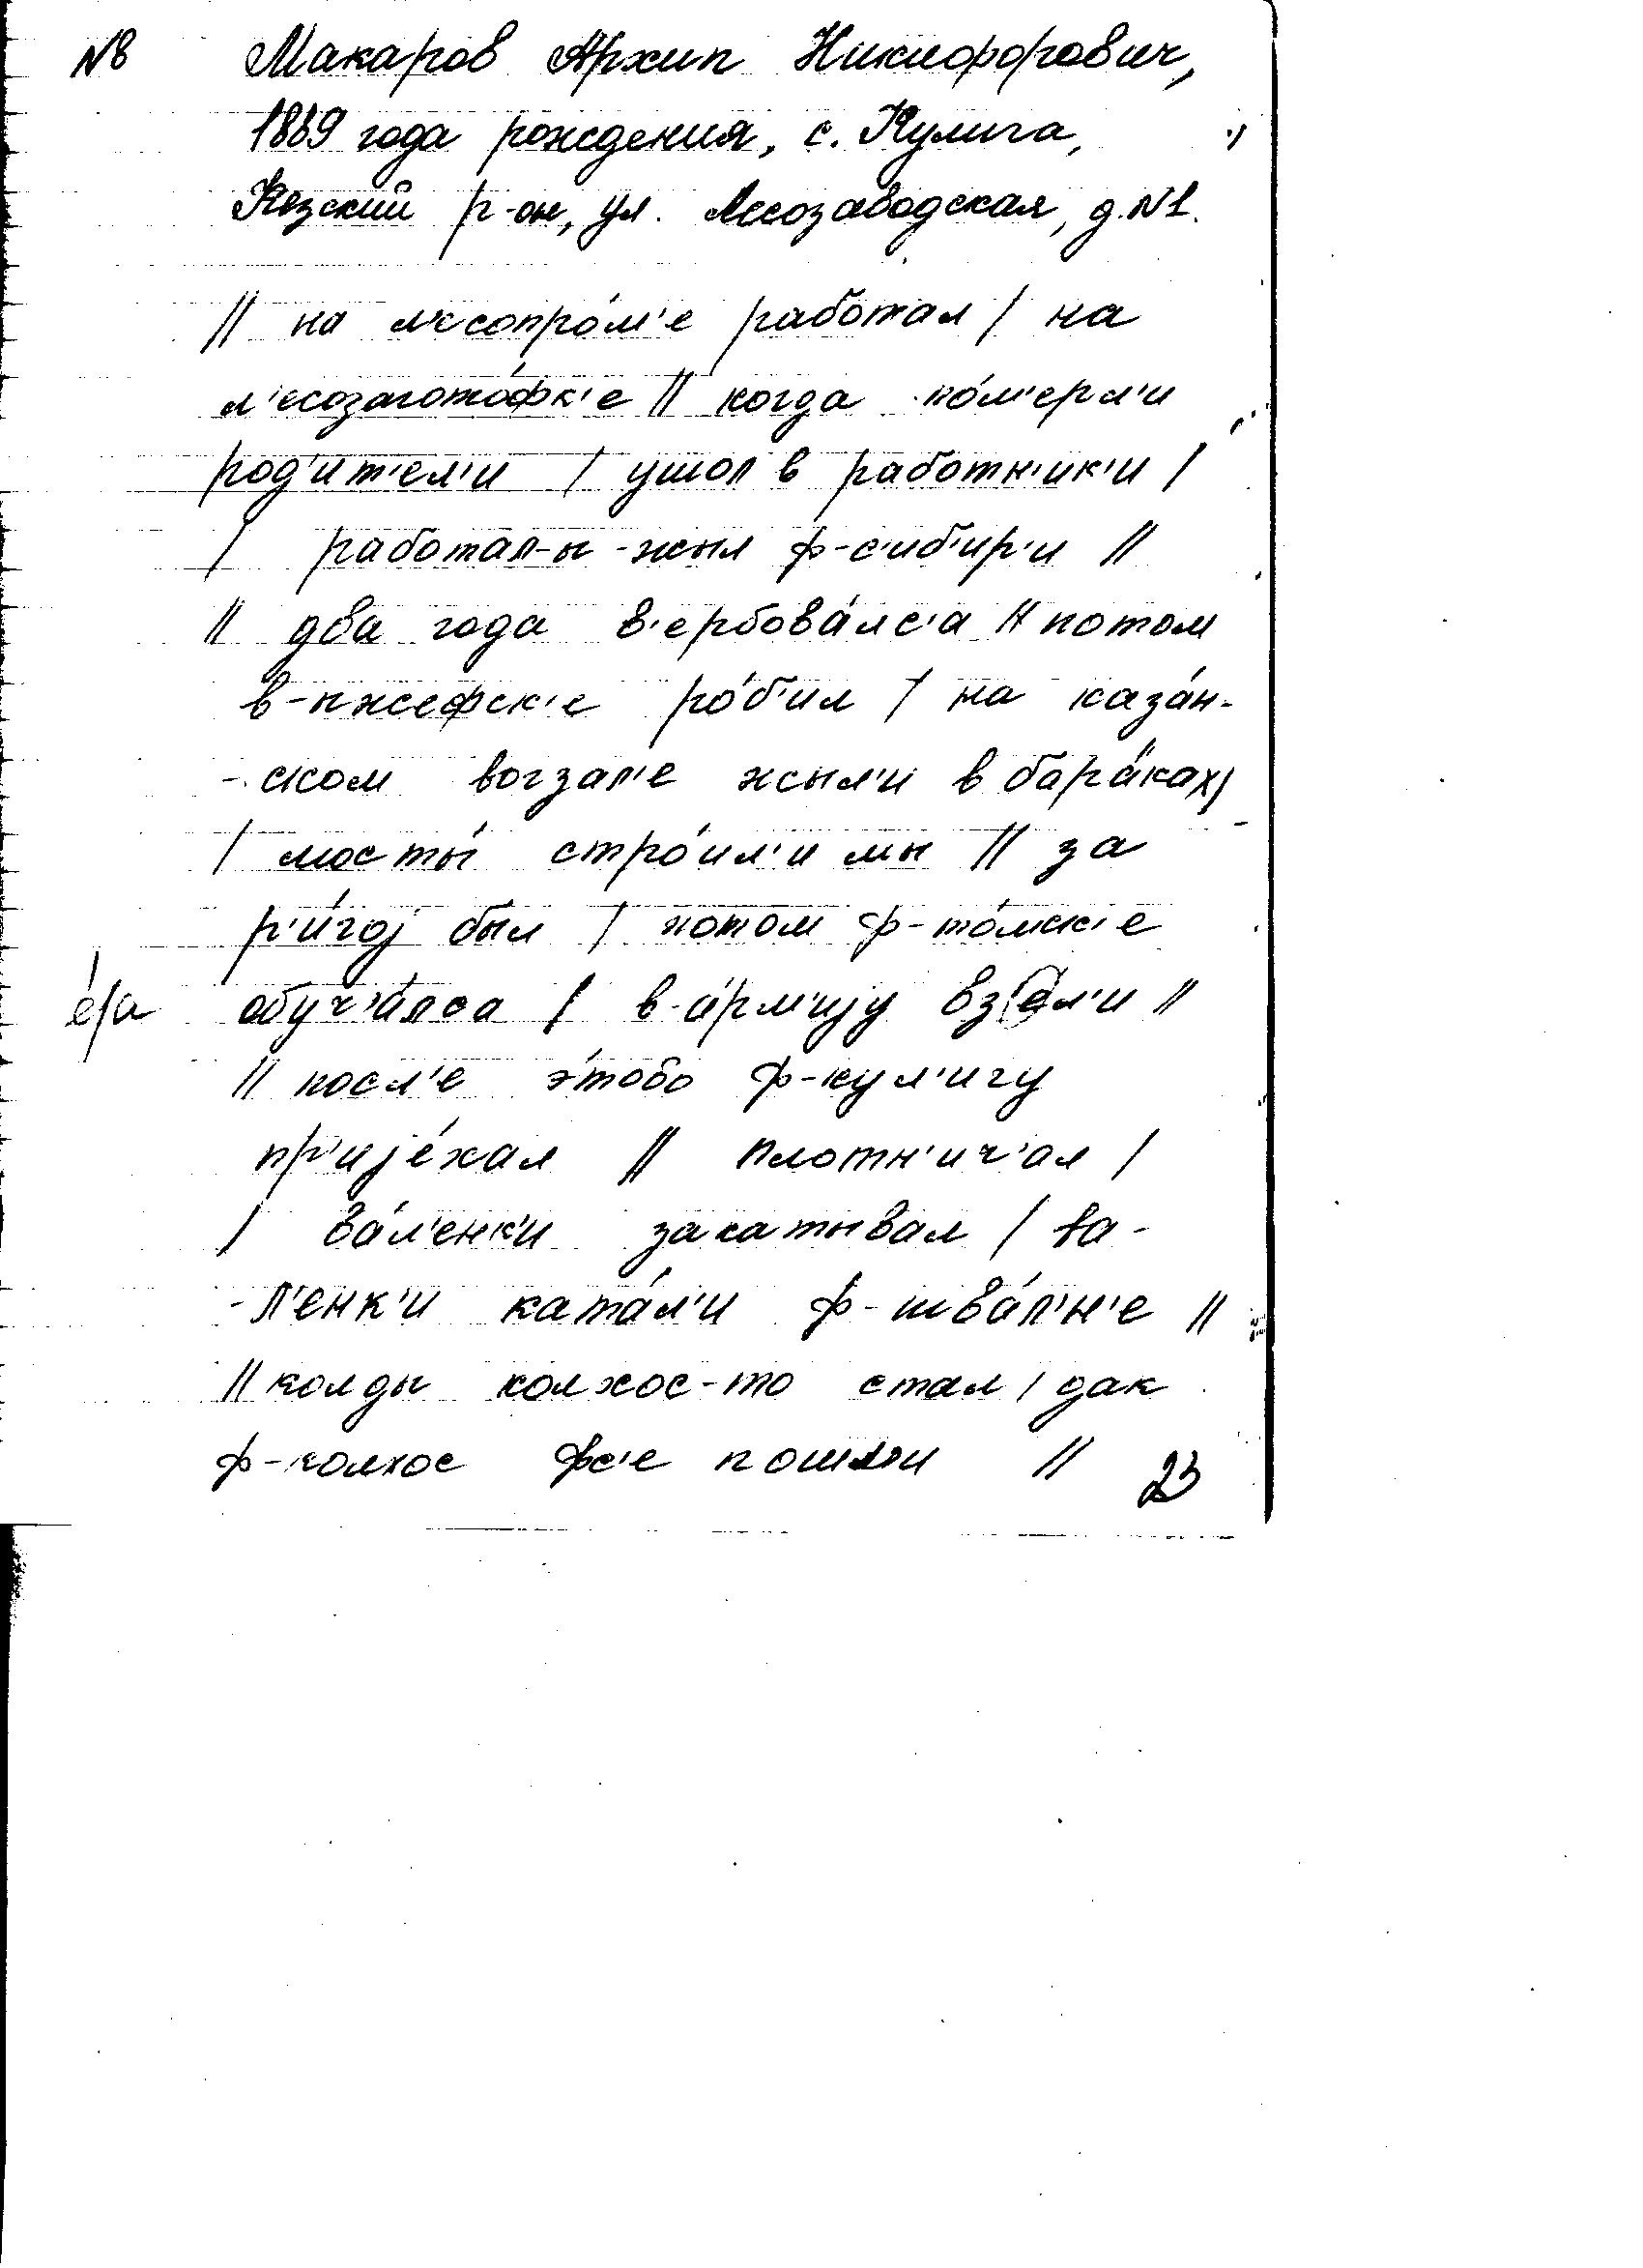 №8 Макаров Архип Никифорович,
1889 года рождения, с. Кулига,
Кезский р-он, ул. Лесозаводская, д.№1.
|| на л'есопро́м'е работал / на
л'есозагото́фк'е || когда по́м'ерл'и
род'ит'ел'и / ушол в работн'ик'и /
/ работал-ы-жыл ф-с'иб'ир'и ||
|| два года в'ербова́лс'а || потом
в-ыжефск'е ро́б'ил / на каза́н-
-ском вогзал'е жыл'и в бара́ках /
/ мосты́ стро́ил'и мы || за
р'и́гој был / потом ф-то́мск'е
е́/а обуч'а́лса / в-а́рм'ију вз'ел'и ||
|| посл'е э́тово ф-кул'игу
пр'ије́хал || плотн'ич'ал /
/ ва́л'енк'и закатывал / ва-
-л'енк'и ката́л'и ф-шва́л'н'е ||
|| колды колхос-то стал / дак
ф-колхос фс'е пошл'и || 23